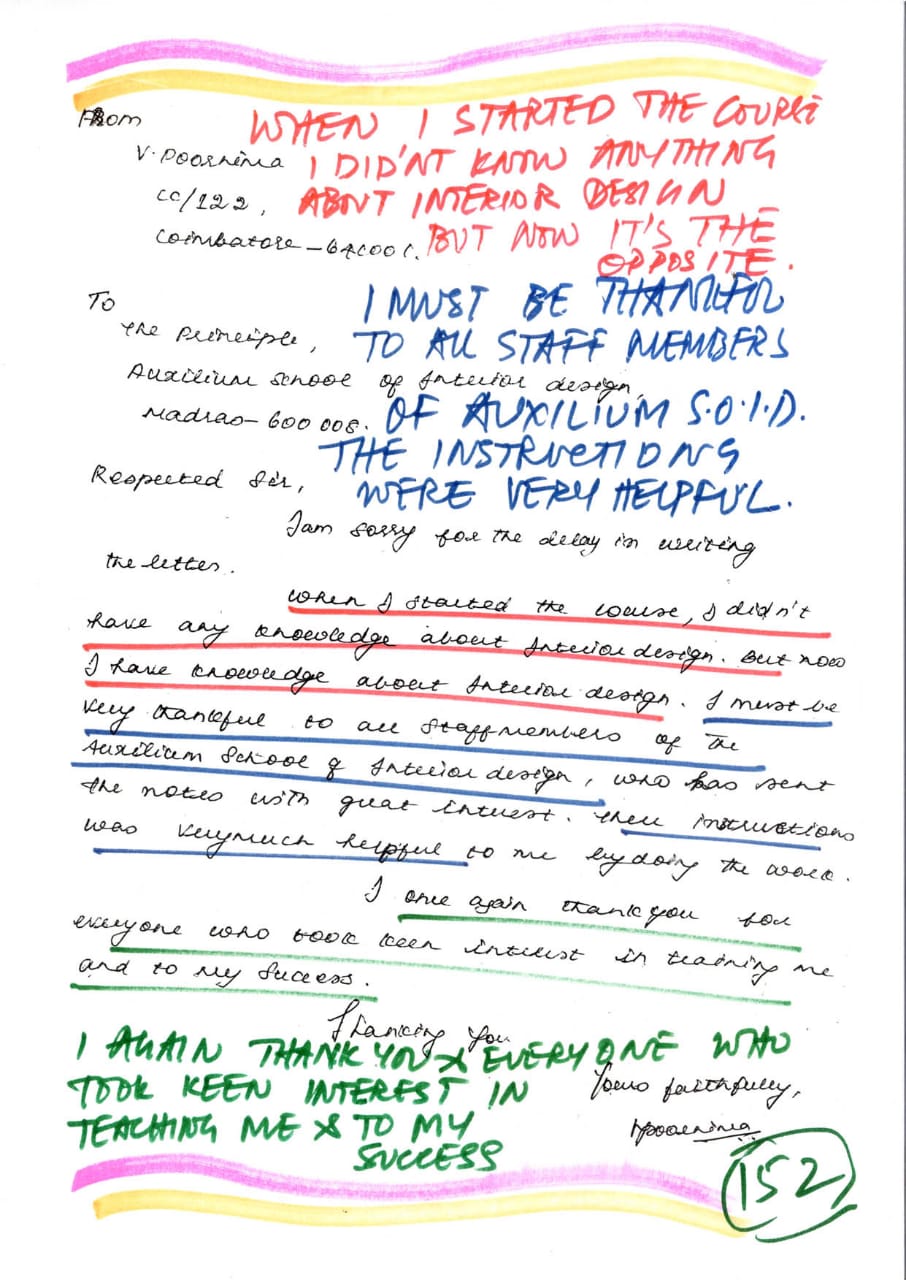 From
WHEN I STARTED THE COURSE
V. Poornima
I DID'NT KNOW ANYTHING
CC/122,
ABOUT INTERIOR DESIGN
Coimbatore-641001.
BUT NOW IT'S THE
OPPOSITE.
To
I MUST BE THANKFUL
The Principle,
TO ALL STAFF MEMBERS
Auxilium School of Interior design,
Madras-600 008.
OF AUXILIUM S.O.I.D.
THE INSTRUCTIONS
Respected Sir,
WERE VERY HELPFUL.
I am sorry for the delay in writing
the letter.
When I started the course, I didn't
have any knowledge about Interior design. But now
I have knowledge about Interior design. I must be
very thankful to all Staffmembers of the
Auxilium School of Interior design, who has sent
the notes with great interest. Their instructions
was verymuch helpful to me by doing the work.
I once again thank you for
everyone who took keen interest in teaching me
and to my Success.
Thanking you
I AGAIN THANK YOU & EVERYONE WHO
TOOK KEEN INTEREST IN
Yours faithfully,
TEACHING ME & TO MY
VPoornima
SUCCESS
152